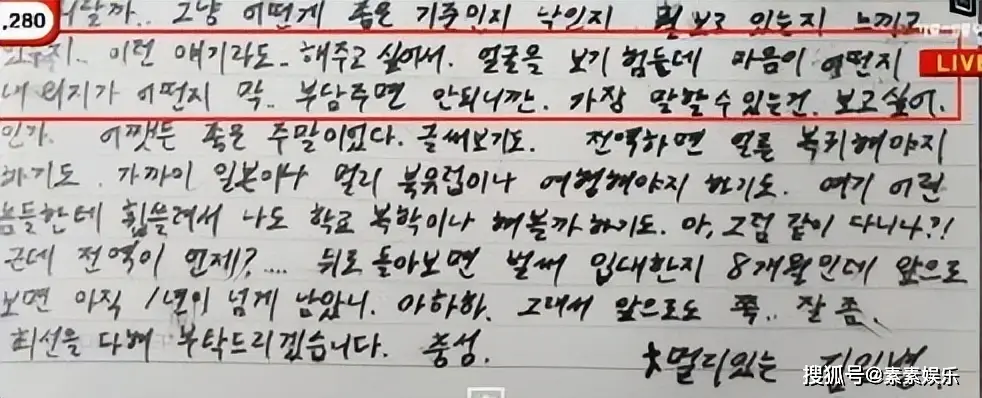 .280
그냥 어떤게 좋은 기준인지 낙인지 뭘 보고 있는지 느끼고
있는지.. 이런 얘기라도.. 해주고 싶어서. 얼굴을 보기 힘든데 마음이 어떤지
LIVE
내 의지가 어떤지 막.. 부담주면 안되니깐. 가장 말할 수 있는건. 보고싶어.
인가. 어쨋든 좋은 주말이었다. 글써보기도. 전역하면 얼른 복귀해야지
하기도. 가까이 일본이나 멀리 북유럽이나 여행해야지 하기도. 여기 어린
놈들한테 휩쓸려서 나도 학교 복학이나 해볼까 하기도. 아, 그럼 같이 다니나?!
근데 전역이 언제?.... 뒤로 돌아보면 벌써 입대한지 8개월인데 앞으로
보면 아직 1년이 넘게 남았니. 아하하. 그래서 앞으로도 쭉.. 잘 좀.
최선을 다해 부탁드리겠습니다. 충성.
멀리있는 김일병.
搜狐号@素素娱乐